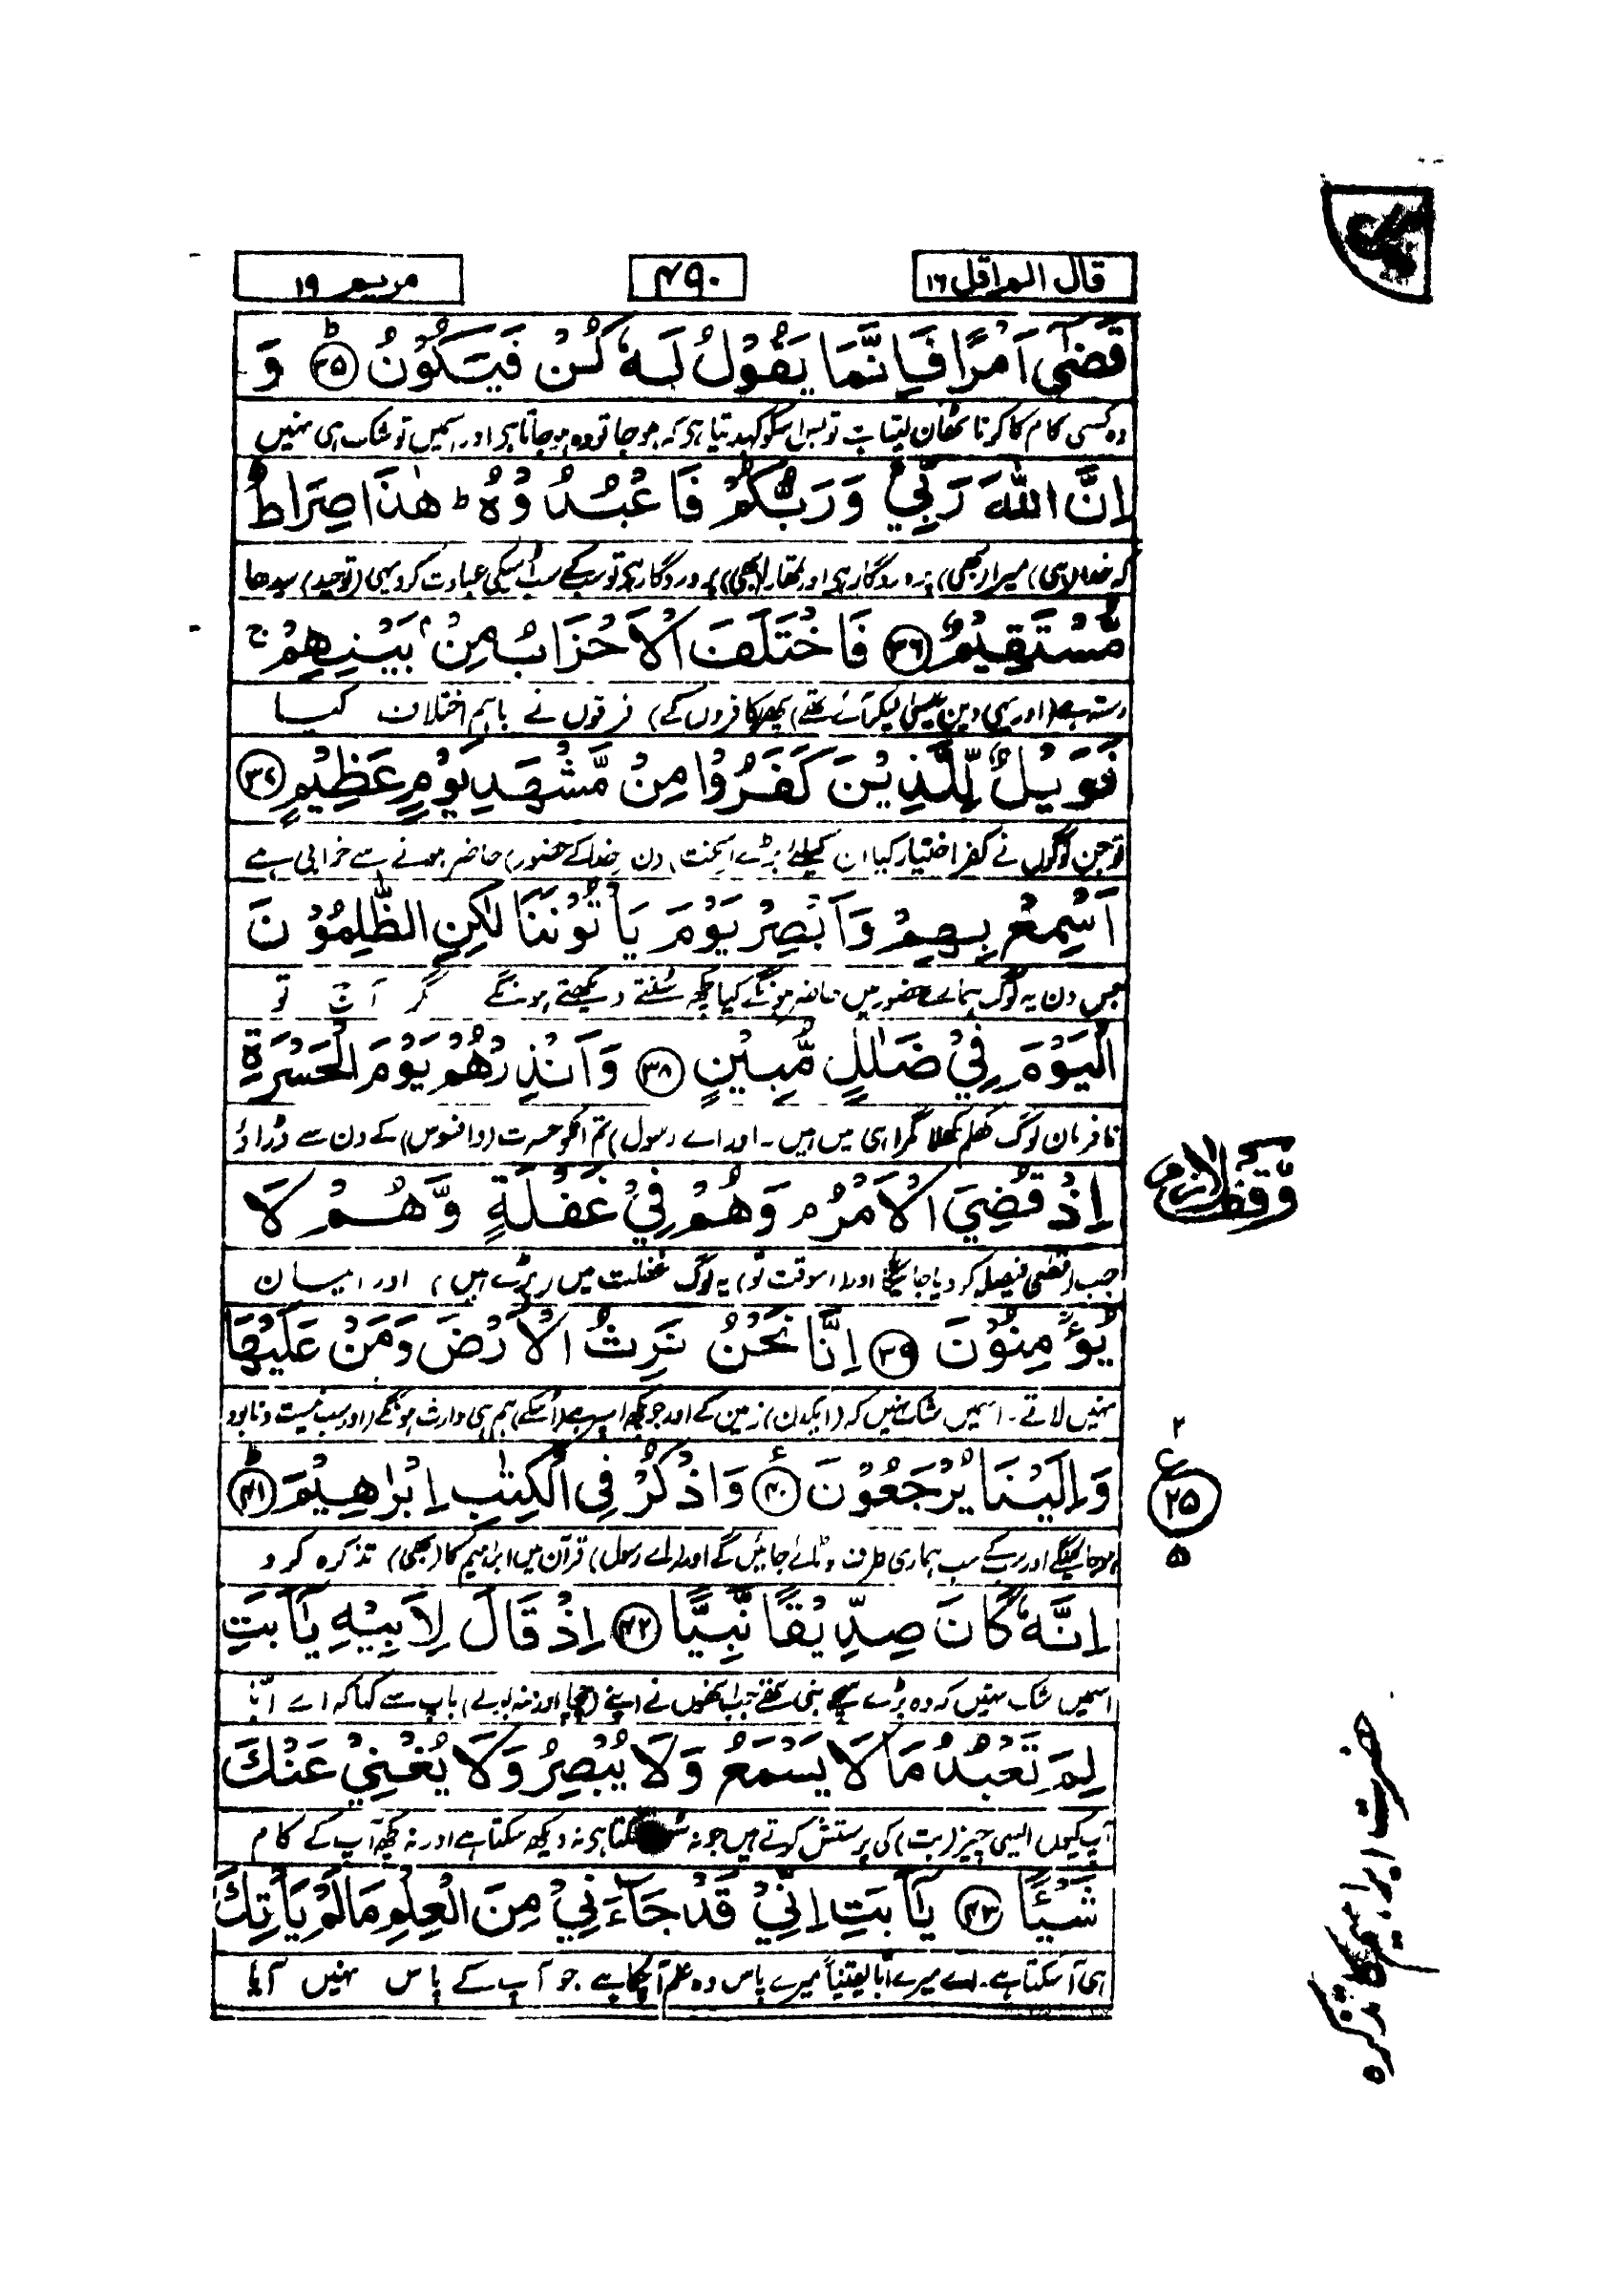 قال الم اقل ۱۶
۴۹۰
مریم ۱۹
قَضٰۤى اَمْرًا فَاِنَّمَا يَقُوْلُ لَهٗ كُنْ فَيَكُوْنُ ؕ ﴿۳۵﴾ وَ
وہ کسی کام کا کرنا ٹھان لیتا ہے تو بس اسکو کہدیتا ہی کہ ہو جا تو وہ ہو جاتا ہی اور اسمیں تو شک ہی نہیں
اِنَّ اللّٰهَ رَبِّيْ وَرَبُّكُمْ فَاعْبُدُوْهُ ؕ هٰذَا صِرَاطٌ
کہ خدا (ہی) میرا (بھی) پروردگار ہی اور تمھارا (بھی) پروردگار ہی تو سب کے سب اُسیکی عبادت کرو یہی (توحید) سیدھا
مُّسْتَقِيْمٌ ﴿۳۶﴾ فَاخْتَلَفَ الْاَحْزَابُ مِنْۢ بَيْنِهِمْ ۚ
رستہ ہے (اور یہی دین عیسیٰ لیکر آئے تھے) پھر (کافروں کے) فرقوں نے باہم اختلاف کیا
فَوَيْلٌ لِّلَّذِيْنَ كَفَرُوْا مِنْ مَّشْهَدِ يَوْمٍ عَظِيْمٍ ﴿۳۷﴾
تو جن لوگوں نے کفر اختیار کیا ان کیلئے بڑے (سخت) دن خدا کے حضور) حاضر ہونے سے خرابی ہے
اَسْمِعْ بِهِمْ وَاَبْصِرْ يَوْمَ يَاْتُوْنَنَا لٰكِنِ الظّٰلِمُوْنَ
جس دن یہ لوگ ہمارے حضور میں حاضر ہونگے کیا کچھ سُنتے دیکھتے ہونگے مگر آج تو
الْيَوْمَ فِيْ ضَلٰلٍ مُّبِيْنٍ ﴿۳۸﴾ وَاَنْذِرْهُمْ يَوْمَ الْحَسْرَةِ
نافرمان لوگ کھلم کھلا گمراہی میں ہیں۔ اور اے رسول) تم انکو حسرت (و افسوس) کے دن سے ڈراؤ
اِذْ قُضِيَ الْاَمْرُ م وَهُمْ فِيْ غَفْلَةٍ وَّهُمْ لَا
وقف لازم
جب (قطعی) فیصلہ کر دیا جائیگا اور (اسوقت تو) یہ لوگ غفلت میں (پڑے ہیں) اور ایمان
يُؤْمِنُوْنَ ﴿۳۹﴾ اِنَّا نَحْنُ نَرِثُ الْاَرْضَ وَمَنْ عَلَيْهَا
نہیں لاتے۔ اسمیں شک نہیں کہ (ایکدن) زمین کے اور جو کچھ اسپر ہے (اُسکے) ہم ہی وارث ہونگے (اور سب نیست و نابود
وَاِلَيْنَا يُرْجَعُوْنَ ﴿۴۰﴾ ع وَاذْكُرْ فِى الْكِتٰبِ اِبْرٰهِيْمَ ؕ ﴿۴۱﴾
۲
ع
۲۵
۵
ہو جائینگے اور سب کے سب ہماری طرف لوٹائے جائیں گے اور (اے رسول) قرآن میں ابراہیم کا (بھی) تذکرہ کرو
اِنَّهٗ كَانَ صِدِّيْقًا نَّبِيًّا ﴿۴۲﴾ اِذْ قَالَ لِاَبِيْهِ يٰۤاَبَتِ
اسمیں شک نہیں کہ وہ بڑے سچے نبی تھے جب انھوں نے اپنے (چچا اور منہ بولے) باپ سے کہا کہ اے ابّا
لِمَ تَعْبُدُ مَا لَا يَسْمَعُ وَلَا يُبْصِرُ وَلَا يُغْنِيْ عَنْكَ
آپ کیوں ایسی چیز (بت) کی پرستش کرتے ہیں جو نہ سکتا ہی نہ دیکھ سکتا ہے اور نہ کچھ آپ کے کام
شَيْـًٔا ﴿۴۳﴾ يٰۤاَبَتِ اِنِّيْ قَدْ جَآءَنِيْ مِنَ الْعِلْمِ مَا لَمْ يَاْتِكَ
ہی آ سکتا ہے۔ اے میرے ابّا یقیناً میرے پاس وہ علم آ چکا ہے جو آپ کے پاس نہیں آیا
حضرت ابراہیم کا تذکرہ